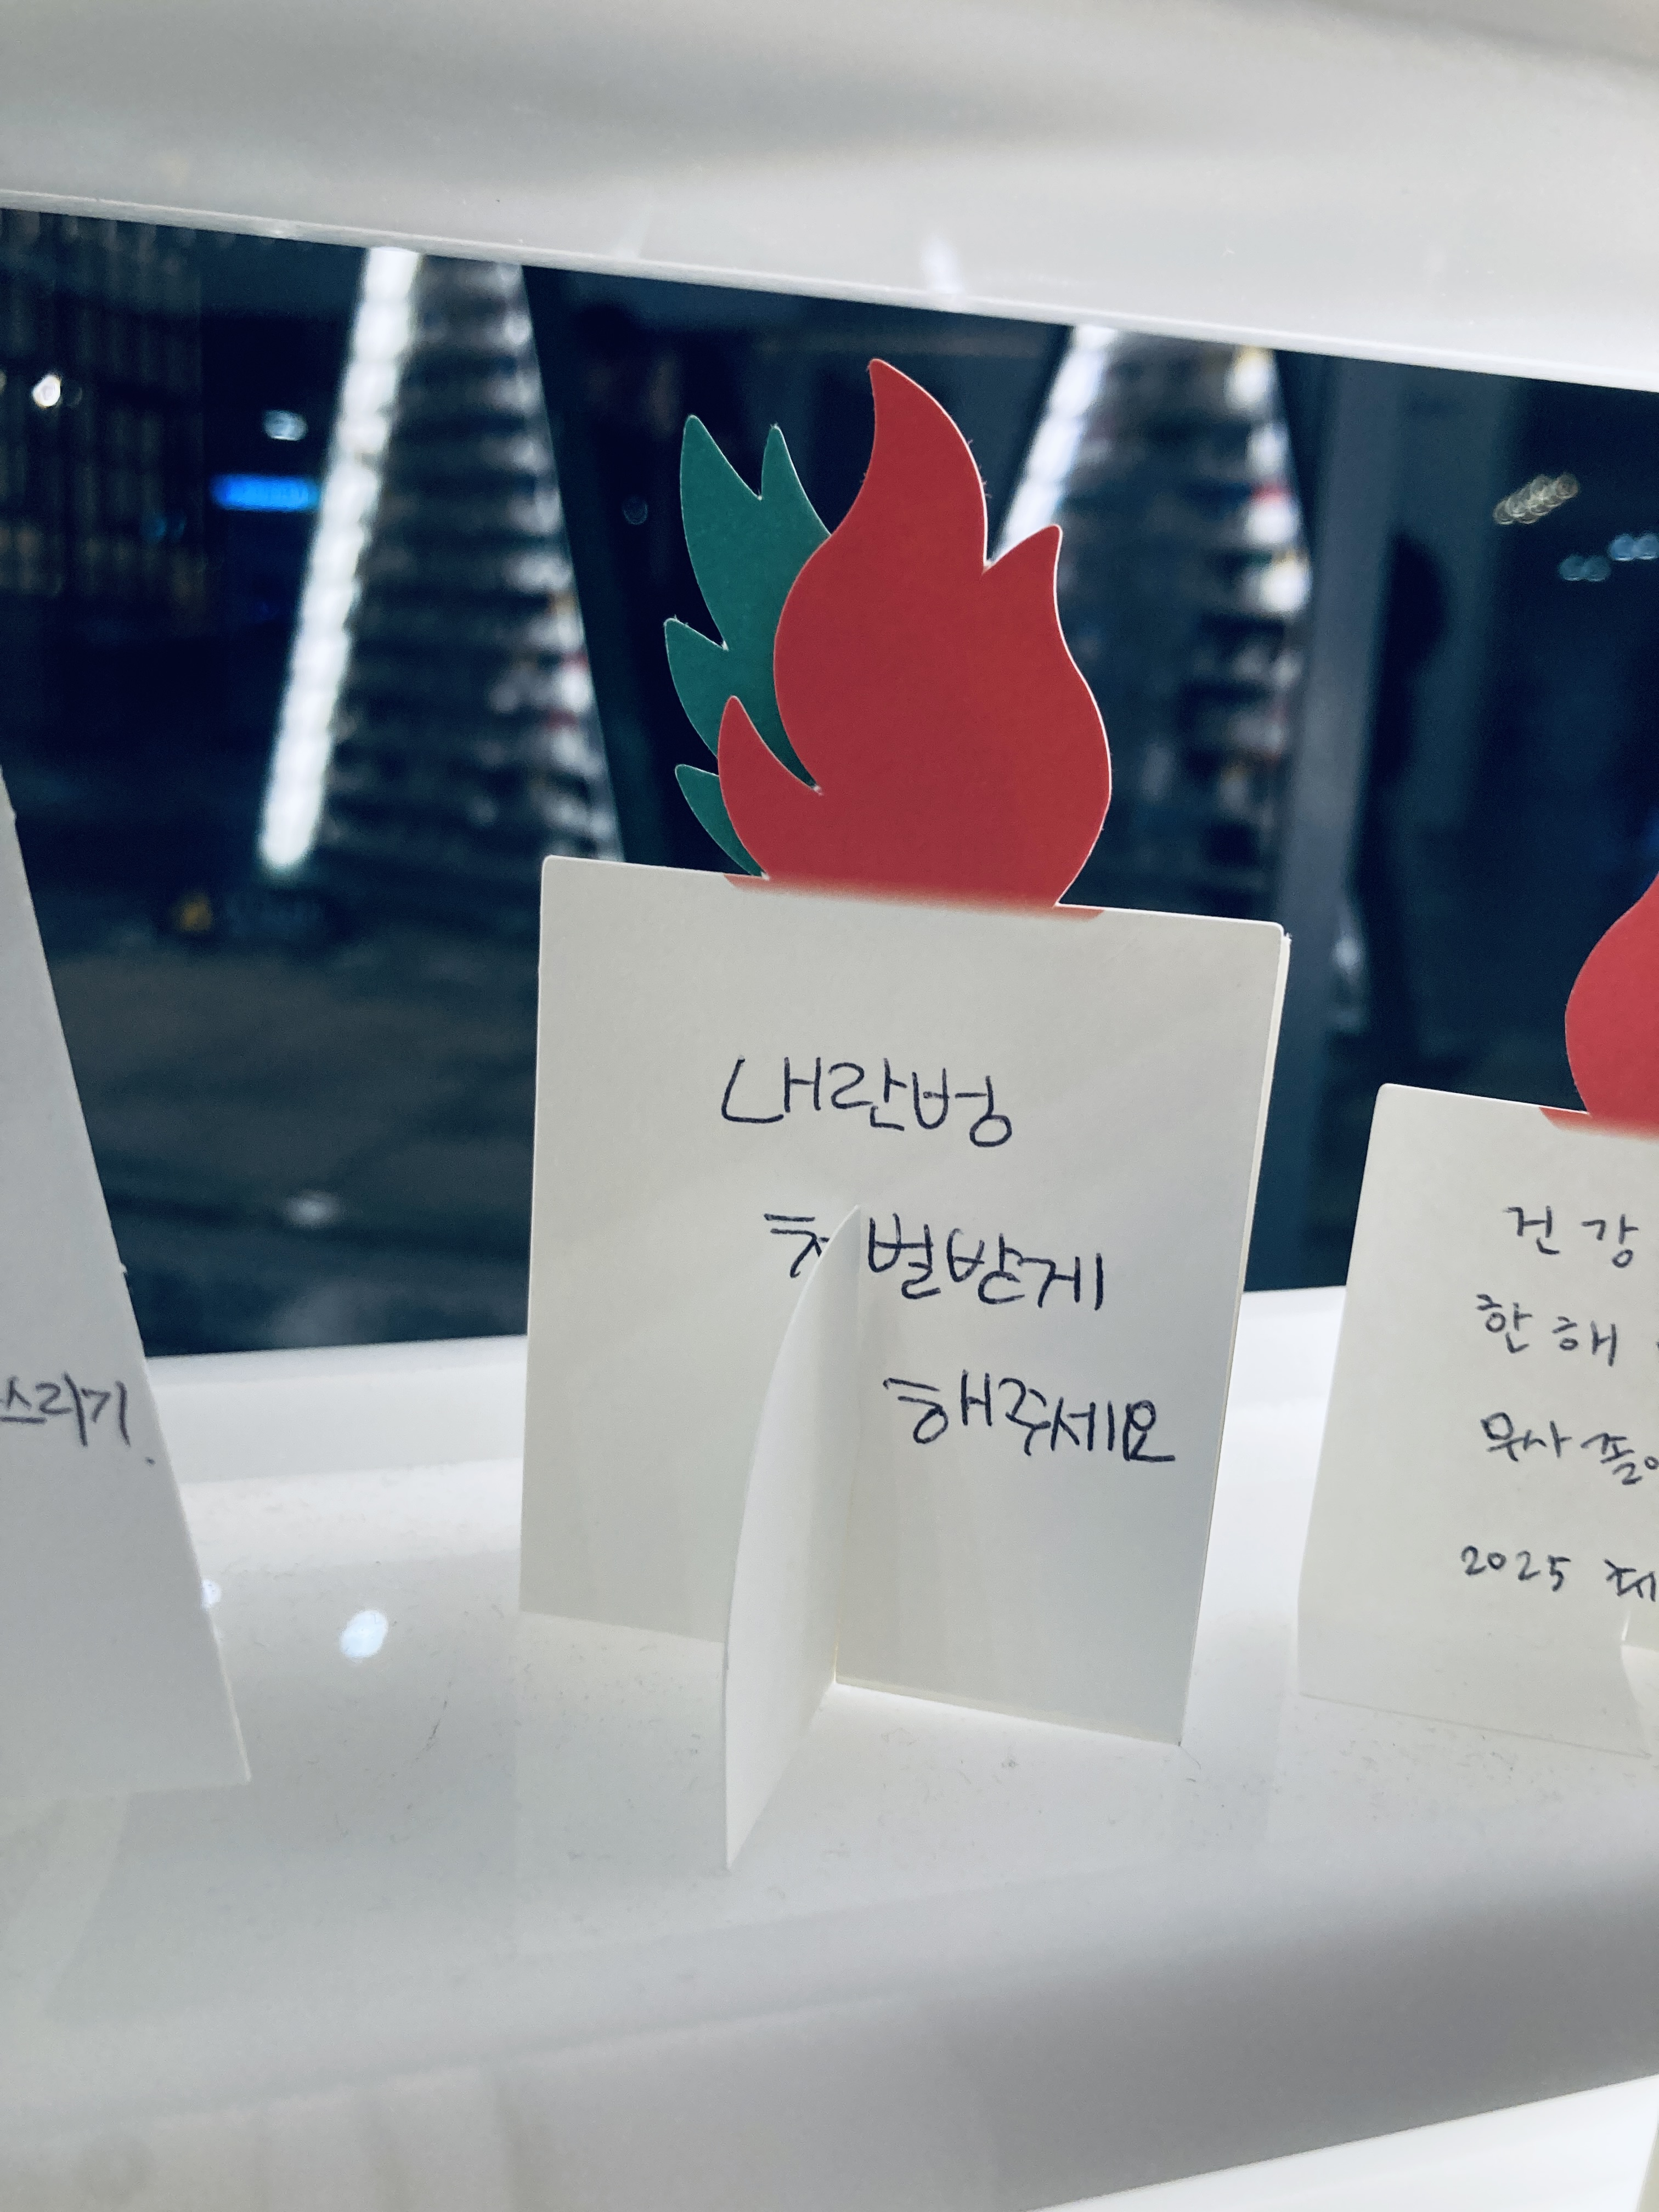 스리기.
내란범
처벌받게
해주세요
건강
한해
무사 졸
2025